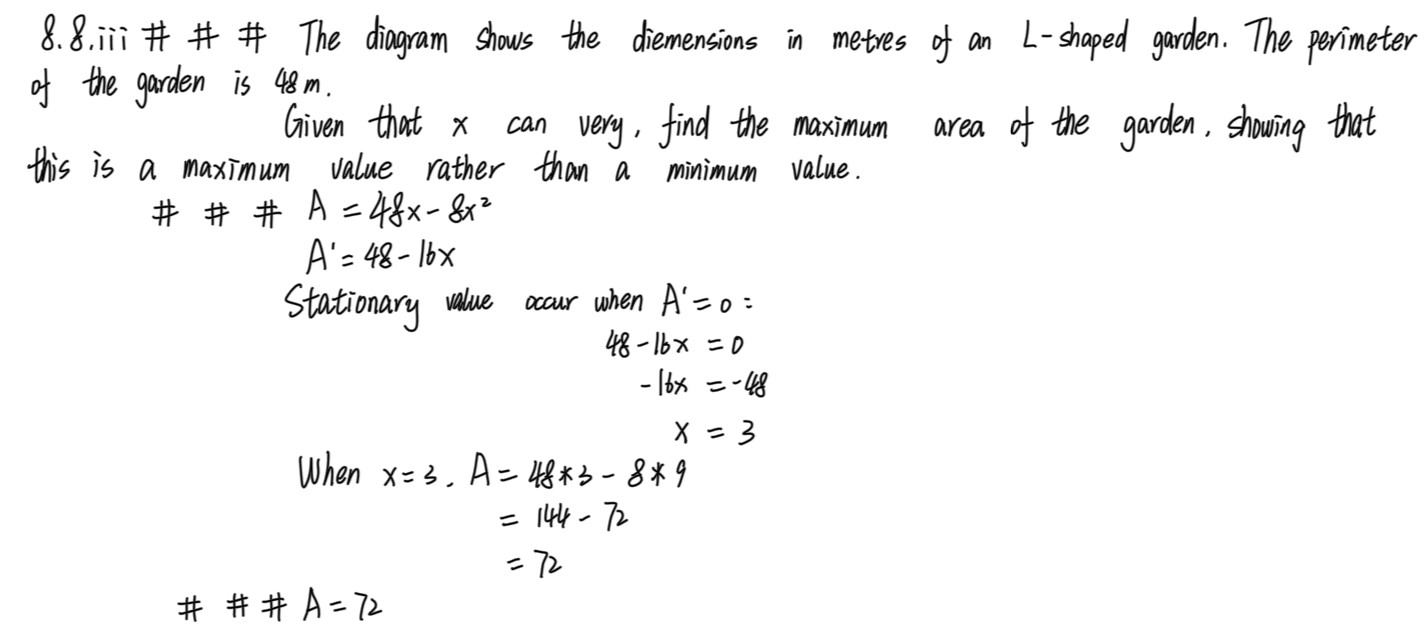 8.8.iii # # # The diagram shows the diemensions in metres of an L-shaped garden. The perimeter
of the garden is 48 m.
Given that x can very, find the maximum area of the garden, showing that
this is a maximum value rather than a minimum value.
# # # A = 48x - 8x²
A' = 48 - 16x
Stationary value occur when A' = 0 :
48 - 16x = 0
- 16x = - 48
x = 3
When x = 3, A = 48*3 - 8*9
= 144 - 72
= 72
# # # A = 72